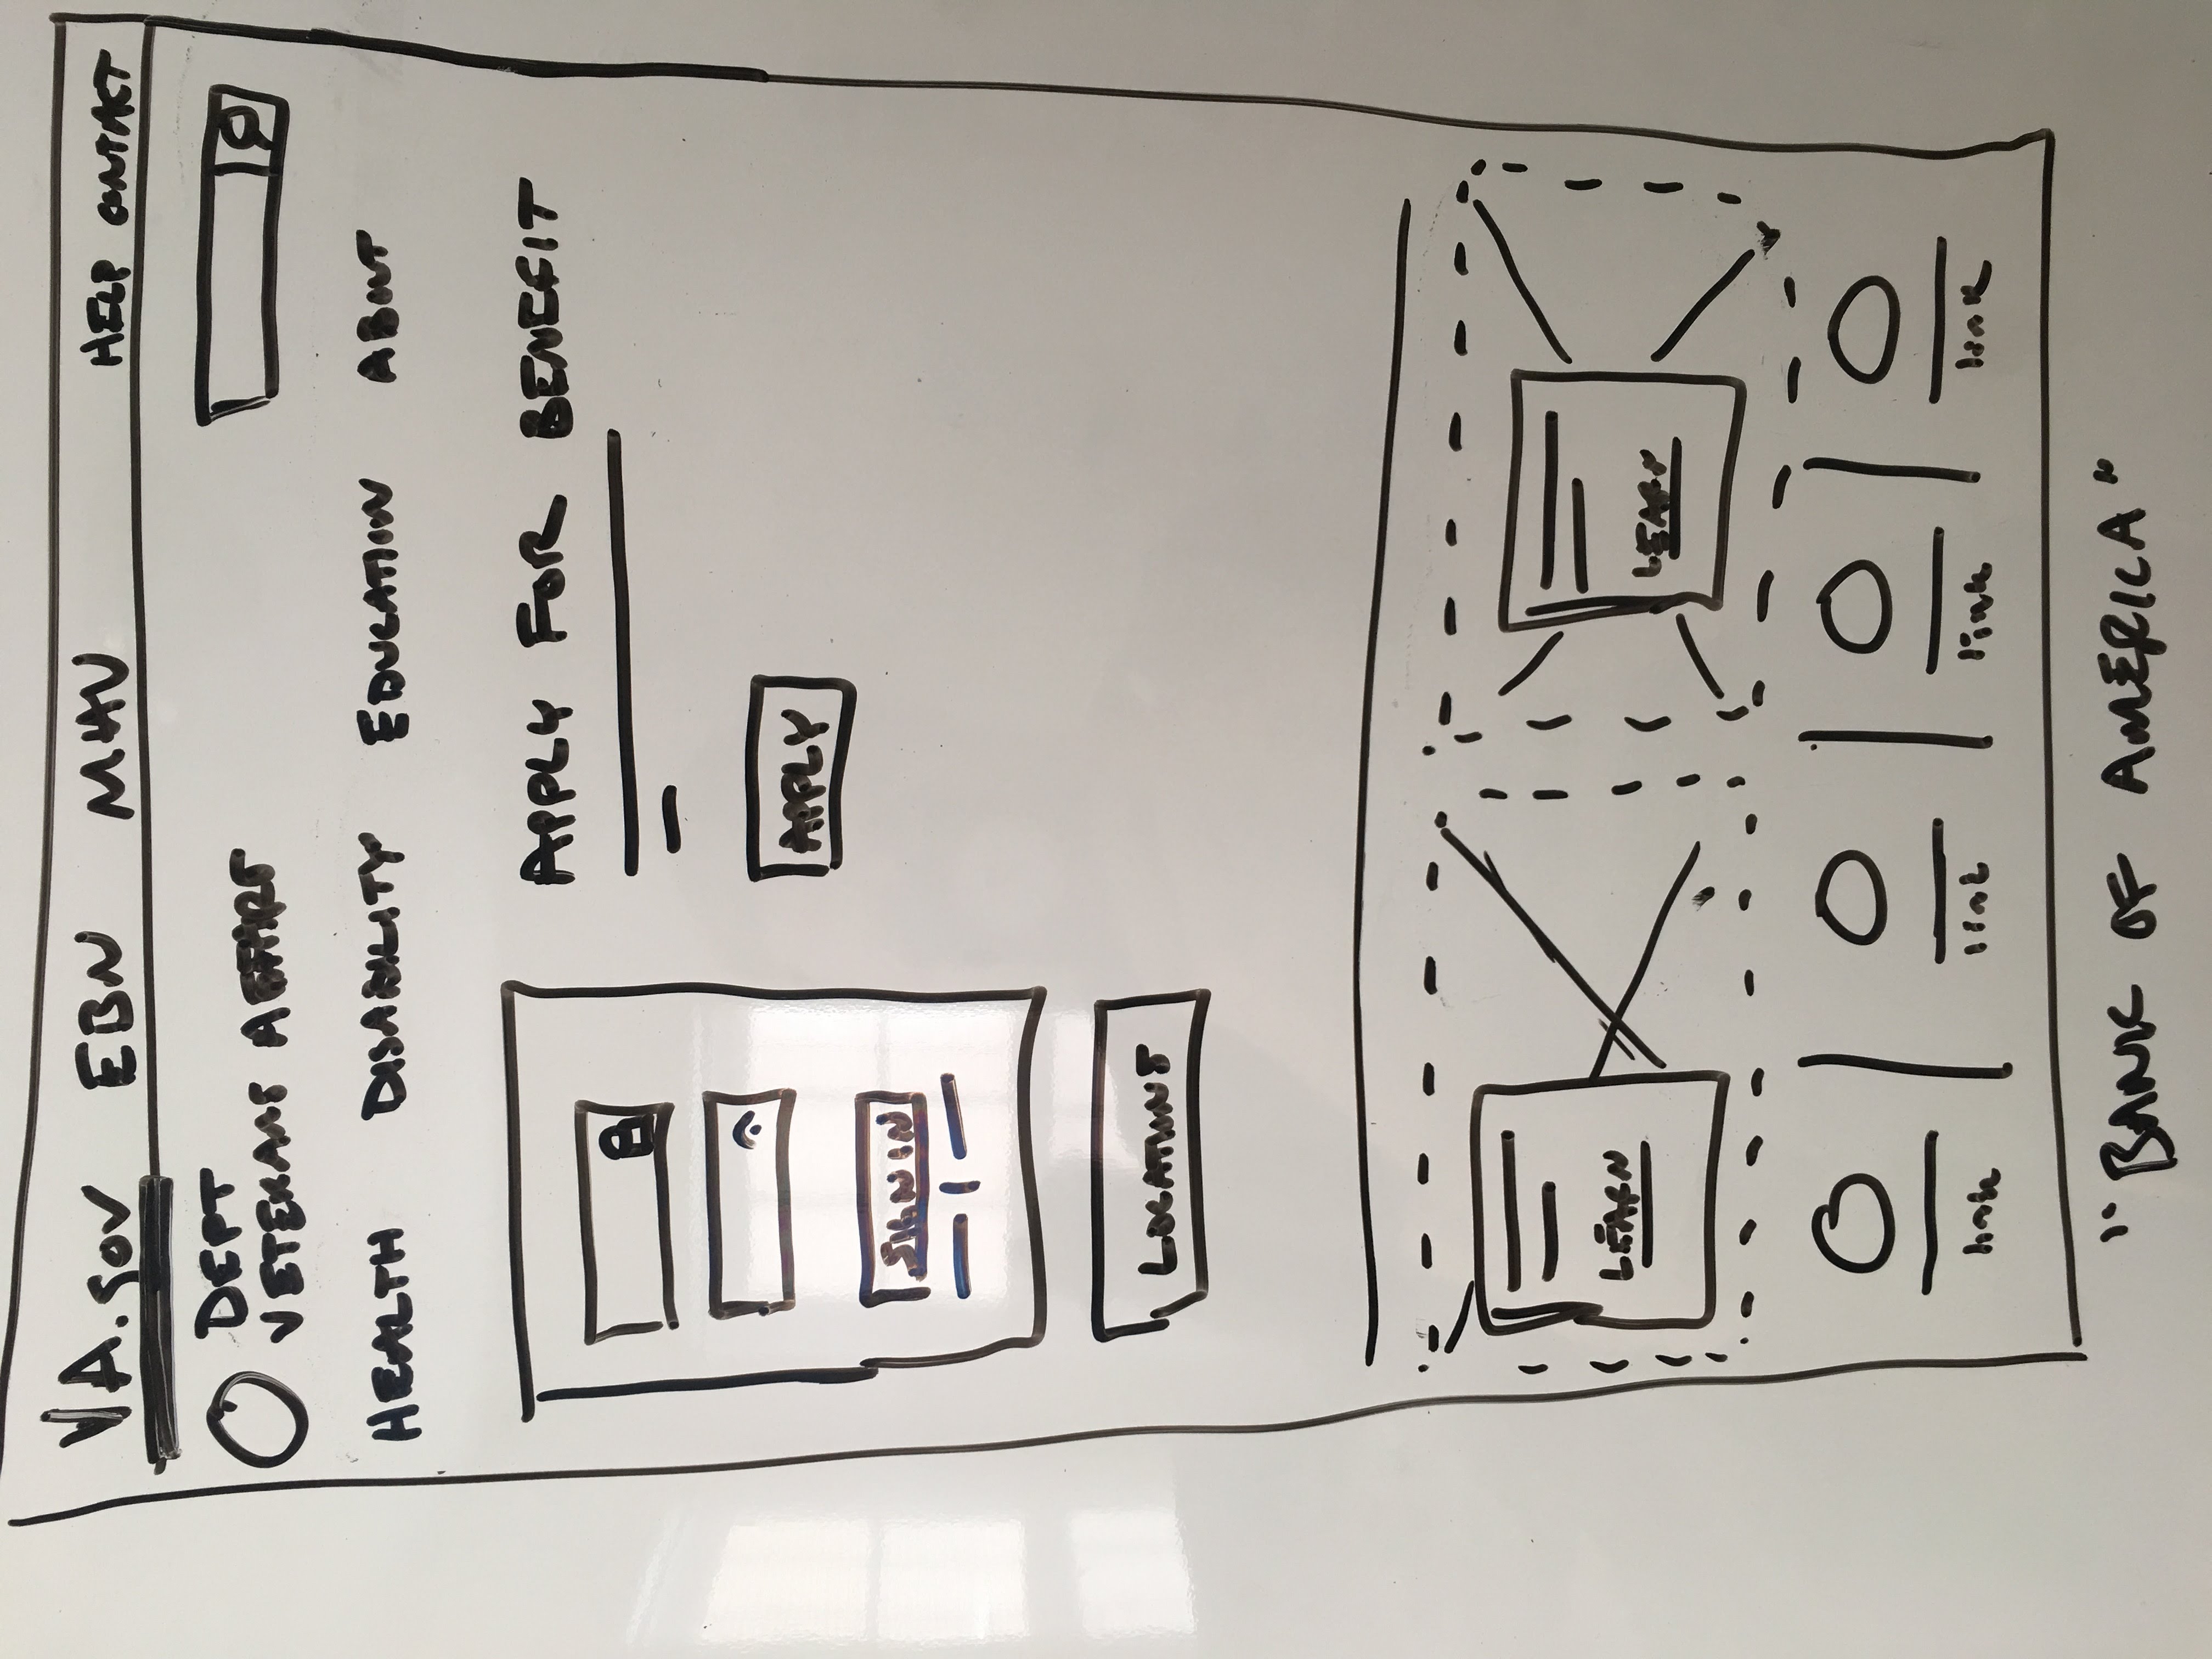 VA.gov EBN MHV HELP CONTACT
DEPT
VETERANS AFFAIRS
HEALTH DISABILITY EDUCATION ABOUT
APPLY FOR BENEFIT
APPLY
SIGN IN
LOCATIONS
LEARN LEARN
link link link link
"BANK OF AMERICA"